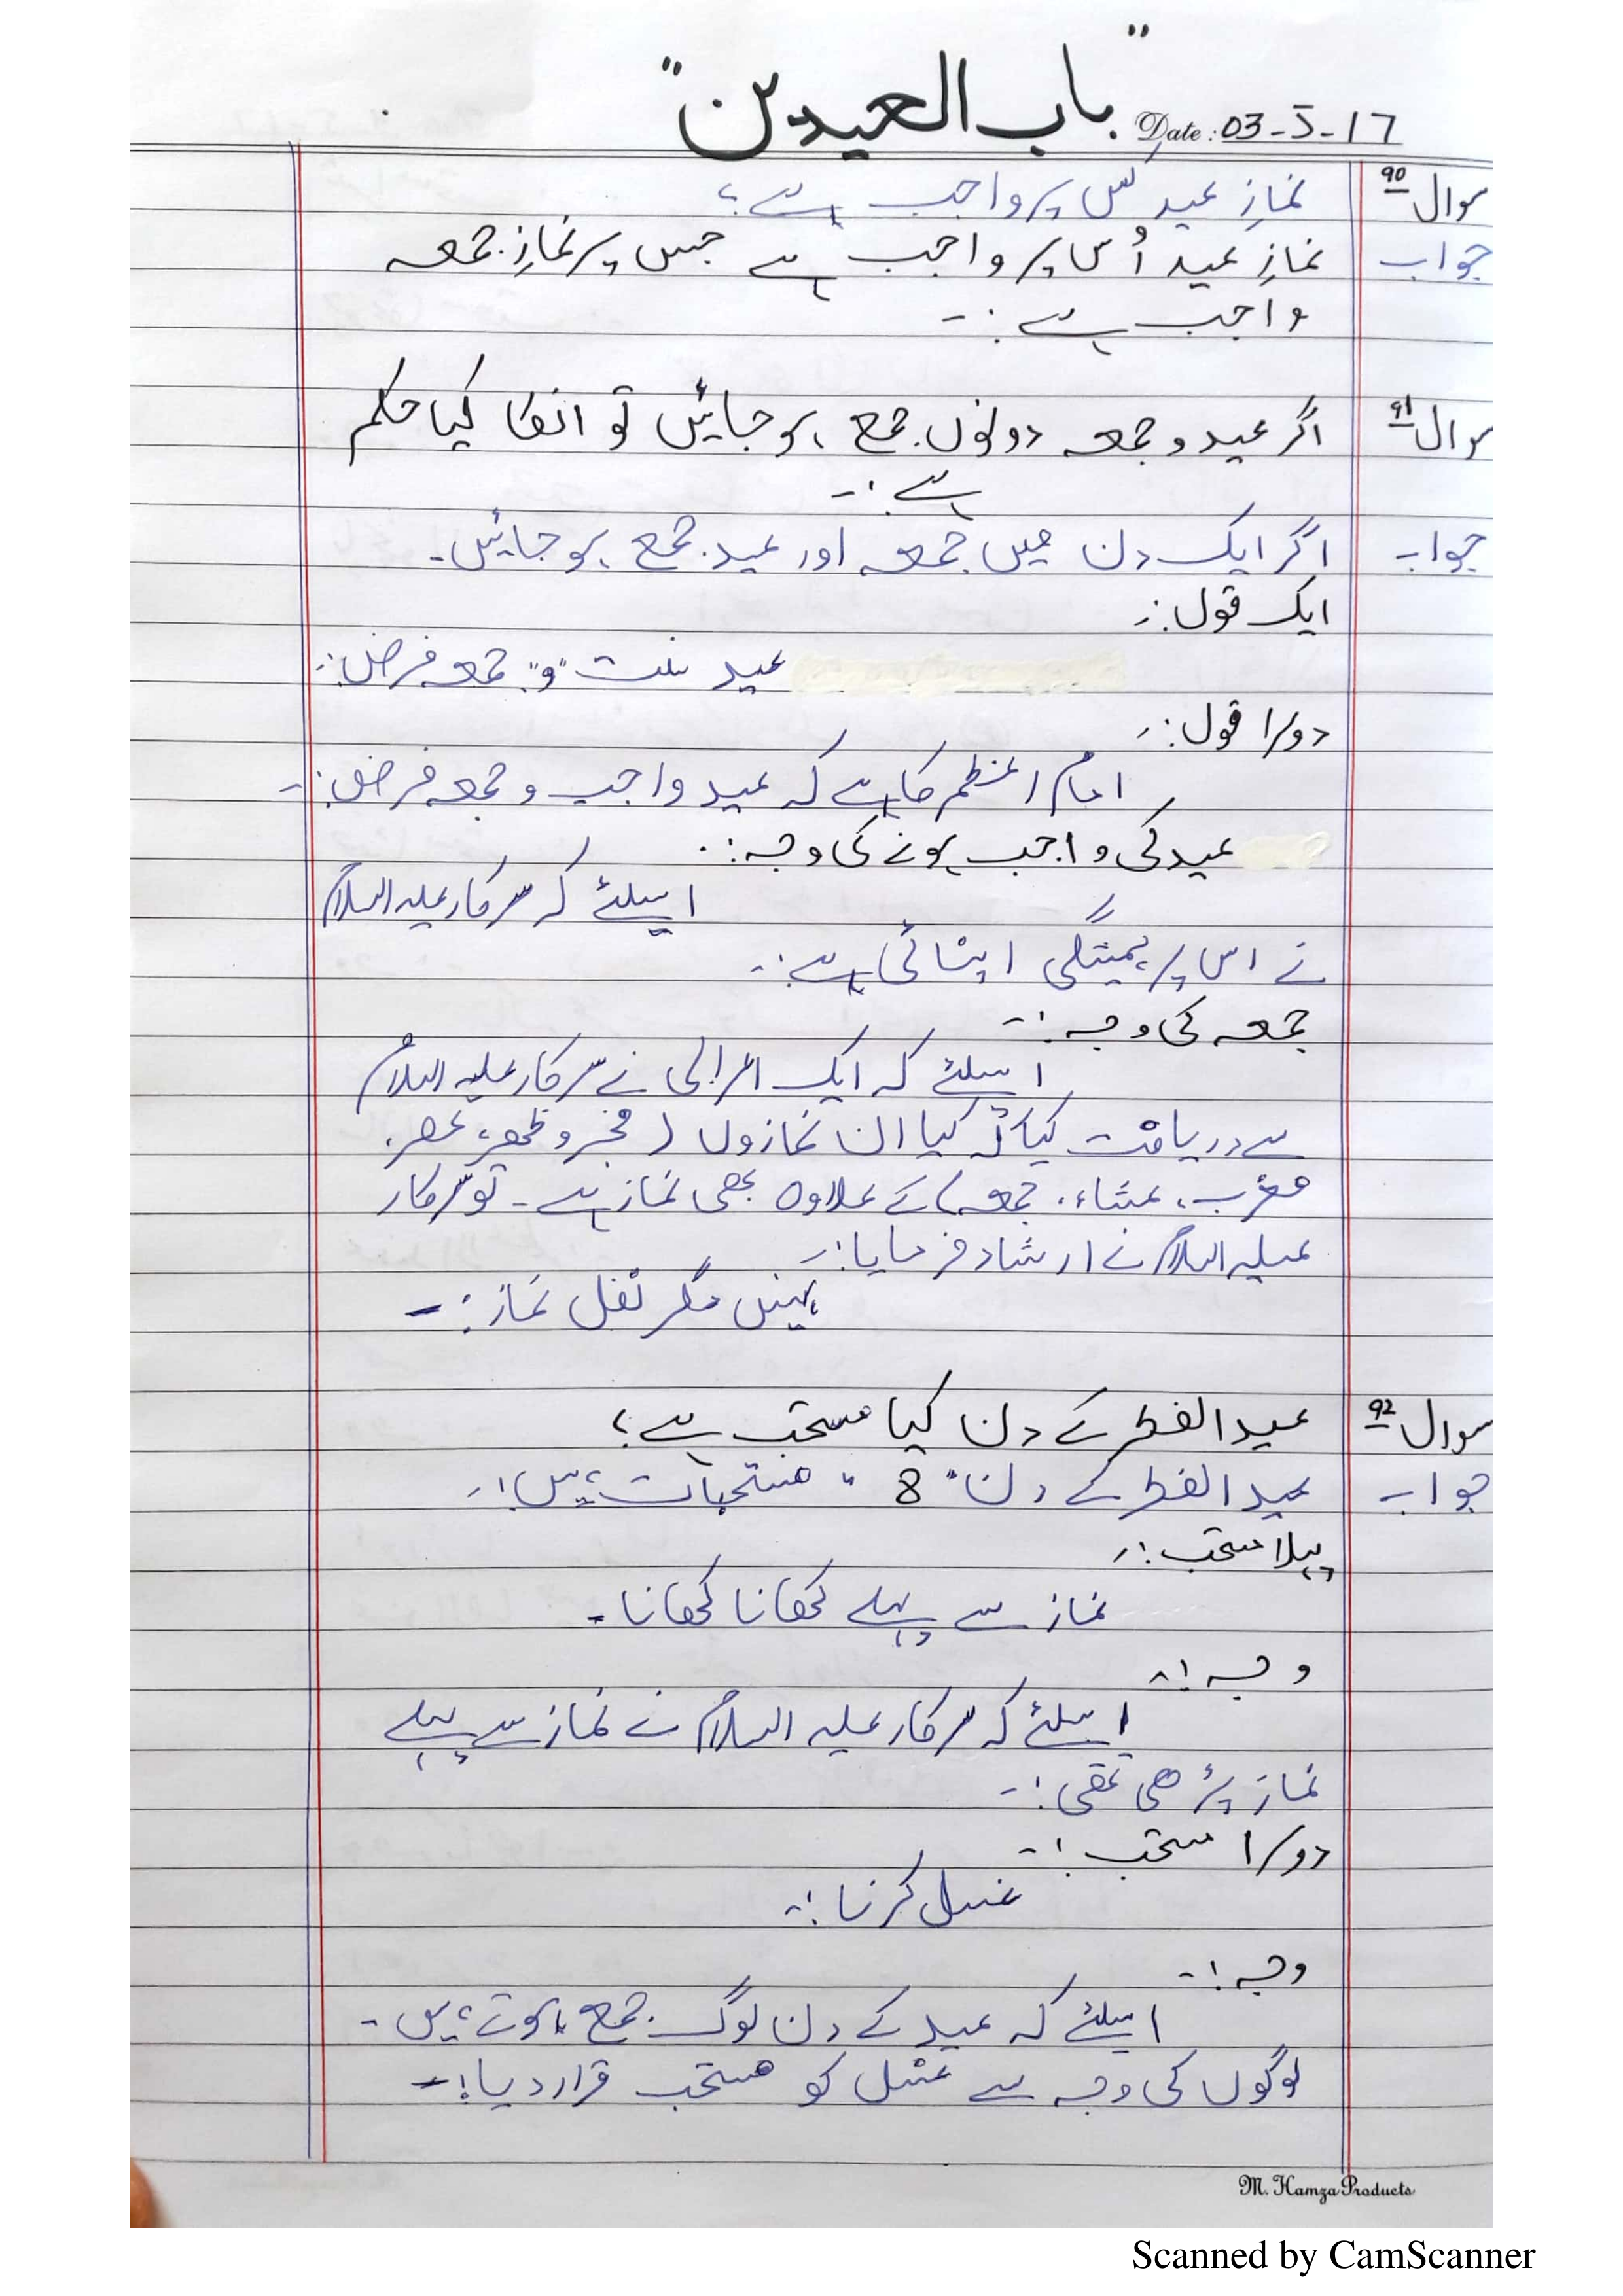 "باب العیدین"
Date: 03-5-17
سوال 90 نمازِ عید کس پر واجب ہے؟
جواب نمازِ عید اُس پر واجب ہے جس پر نمازِ جمعہ
واجب ہے :-
سوال 91 اگر عید و جمعہ دونوں جمع ہوجائیں تو انکا کیا حکم
ہے :-
جواب اگر ایک دن میں جمعہ اور عید جمع ہوجائیں۔
ایک قول :-
عید سنت "و" جمعہ فرض :-
دوسرا قول :-
امام اعظم کا ہے کہ عید واجب و جمعہ فرض :-
عید کی واجب ہونے کی وجہ :-
اسلئے کہ سرکار علیہ السلام
نے اس پر ہمیشگی اپنائی ہے :-
جمعہ کی وجہ :-
اسلئے کہ ایک اعرابی نے سرکار علیہ السلام
سے دریافت کیا کہ کیا ان نمازوں (فجر و ظھر، عصر،
مغرب، عشاء، جمعہ) کے علاوہ بھی نماز ہے ۔ تو سرکار
علیہ السلام نے ارشاد فرمایا :-
نہیں مگر نفل نماز :-
سوال 92 عید الفطر کے دن کیا مستحب ہے؟
جواب عید الفطر کے دن "8" مستحبات ہیں :-
پہلا مستحب :-
نماز سے پہلے کھانا کھانا ۔
وجہ :-
اسلئے کہ سرکار علیہ السلام نے نماز سے پہلے
نماز پڑھی تھی :-
دوسرا مستحب :-
غسل کرنا :-
وجہ :-
اسلئے کہ عید کے دن لوگ جمع ہوتے ہیں ۔
لوگوں کی وجہ سے غسل کو مستحب قرار دیا :-
M. Hamza Products
Scanned by CamScanner